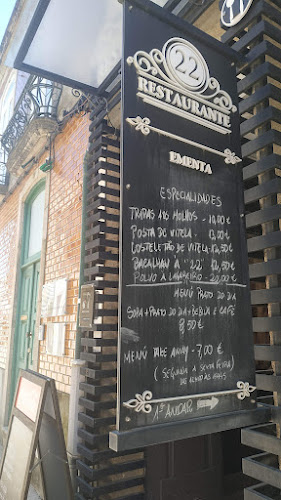 22
RESTAURANTE
EMENTA
ESPECIALIDADES
TRIPAS AOS MOLHOS - 10,00 €
POSTA DE VITELA - 17,50 €
COSTELETÃO DE VITELA - 17,50 €
BACALHAU À "22" 17,50 €
POLVO À LAGAREIRO - 20,00 €
MENÚ PRATO DO DIA
SOPA + PRATO DO DIA + BEBIDA E CAFÉ
8,50 €
MENÚ TAKE AWAY - 7,00 €
(SEGUNDA A SEXTA FEIRA
1º ANDAR